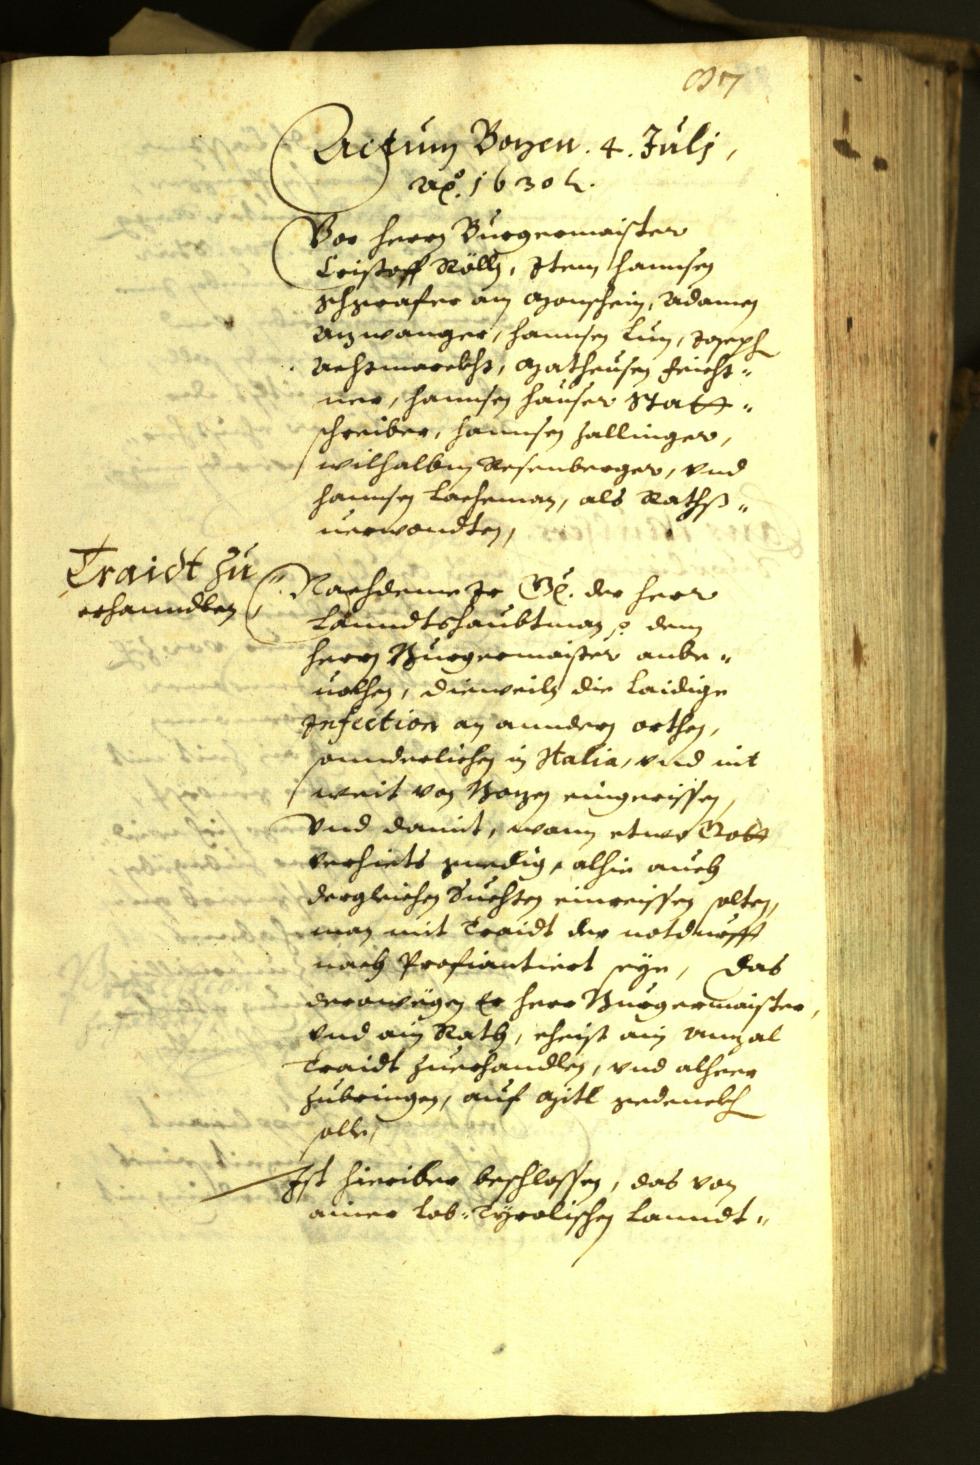 Actum Bozen. 4. Julj,
Aõ. 1630 h.
Vor herrn Burgermaister
Cristoff Röll, Item hannsen
am Monschein, Adamen
Anzwanger, hannsen Lun, Joseph
Matheusen Feicht-
ner, hannsen hauser Statt-
schreiber, hannsen Zallinger,
wilhalbm Rosenberger, vnd
hannsen Lacheman, als Raths-
uerwondten,
Traidt zu
erhanndlen
Nachdeme Ir Gn. der herr
Lanndtshaubtman dem
herrn Burgermaister anbe-
uolhen, dieweiln die laidige
Infection an anndern orthen,
sonnderlichen in Italia, vnd nit
weit von Bozen eingerissen,
Vnd damit, wann etwo Gott
verhiets gnedig, alhie auch
dergleichen Suchten einreissen solten,
man mit Traidt der notdurfft
nach Profiantiert seye, Das
derowegen Er herr Burgermaister,
vnd ain Rath, eheist ain Anzal
Traidt zuerhandlen, vnd alheer
zubringen, auf Mitl gedenckh
solle,
Ist hieriber beschlossen, das von
ainer Lob: Tyrolischen Lanndt-